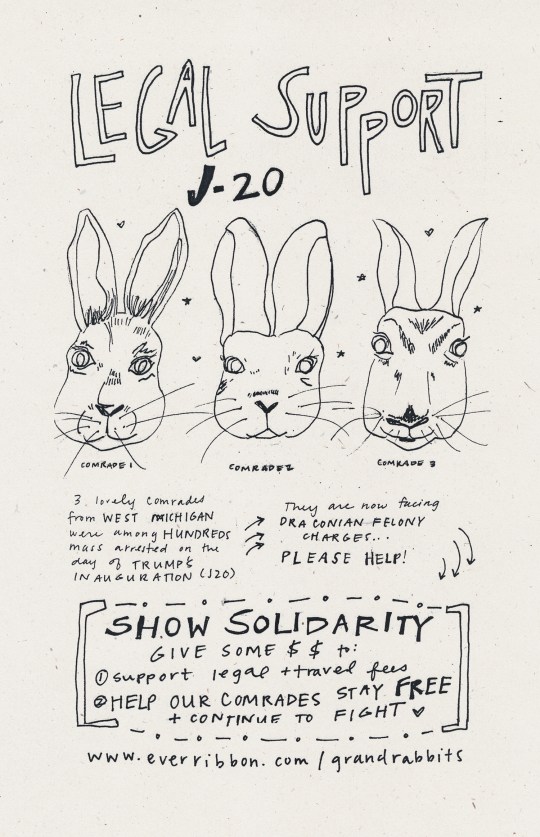 LEGAL SUPPORT
J-20
COMRADE 1
COMRADE 2
COMRADE 3
3 lovely comrades
from WEST MICHIGAN
were among HUNDREDS
mass arrested on the
day of TRUMP'S
INAUGURATION (J20)
They are now facing
DRACONIAN FELONY
CHARGES...
PLEASE HELP!
SHOW SOLIDARITY
GIVE SOME $ $ to:
① support legal + travel fees
② HELP OUR COMRADES STAY FREE
+ CONTINUE TO FIGHT ♥
www.everribbon.com/grandrabbits